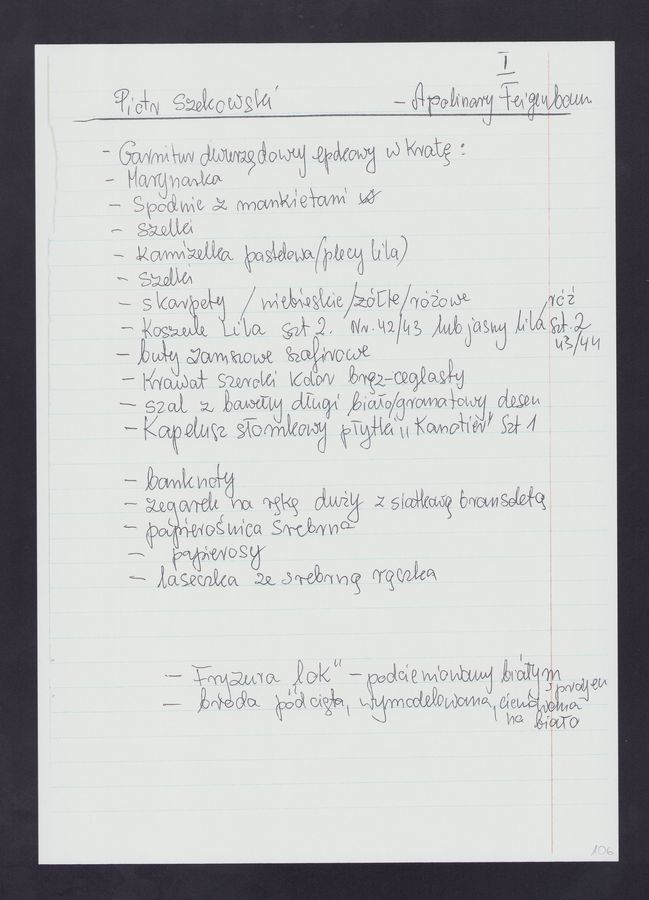 I
Piotr Szekowski - Apolinary Feigenbaum
- Garnitur dwurzędowy w kratę:
- Marynarka
- Spodnie z mankietami
- szelki
- Kamizelka pastelowa (plecy lila)
- szelki
- skarpety / niebieskie/żółte/różowe
- Koszule lila szt 2. Nr. 42/43 lub jasny lila/róż szt. 2
43/44
- buty zamszowe szafirowe
- Krawat szeroki kolor brąz-ceglasty
- szal z bawełny długi biało/granatowy deseń
- Kapelusz słomkowy płytki „Kanotier" szt 1
- banknoty
- zegarek na rękę duży z siatkową bransoletą
- papierośnica srebrna
- papierosy
- laseczka ze srebrną rączka
- Fryzura „lok" - podcieniowany białym
sprayem
- broda podcięta, wymodelowana, cieniowana
na biało
106